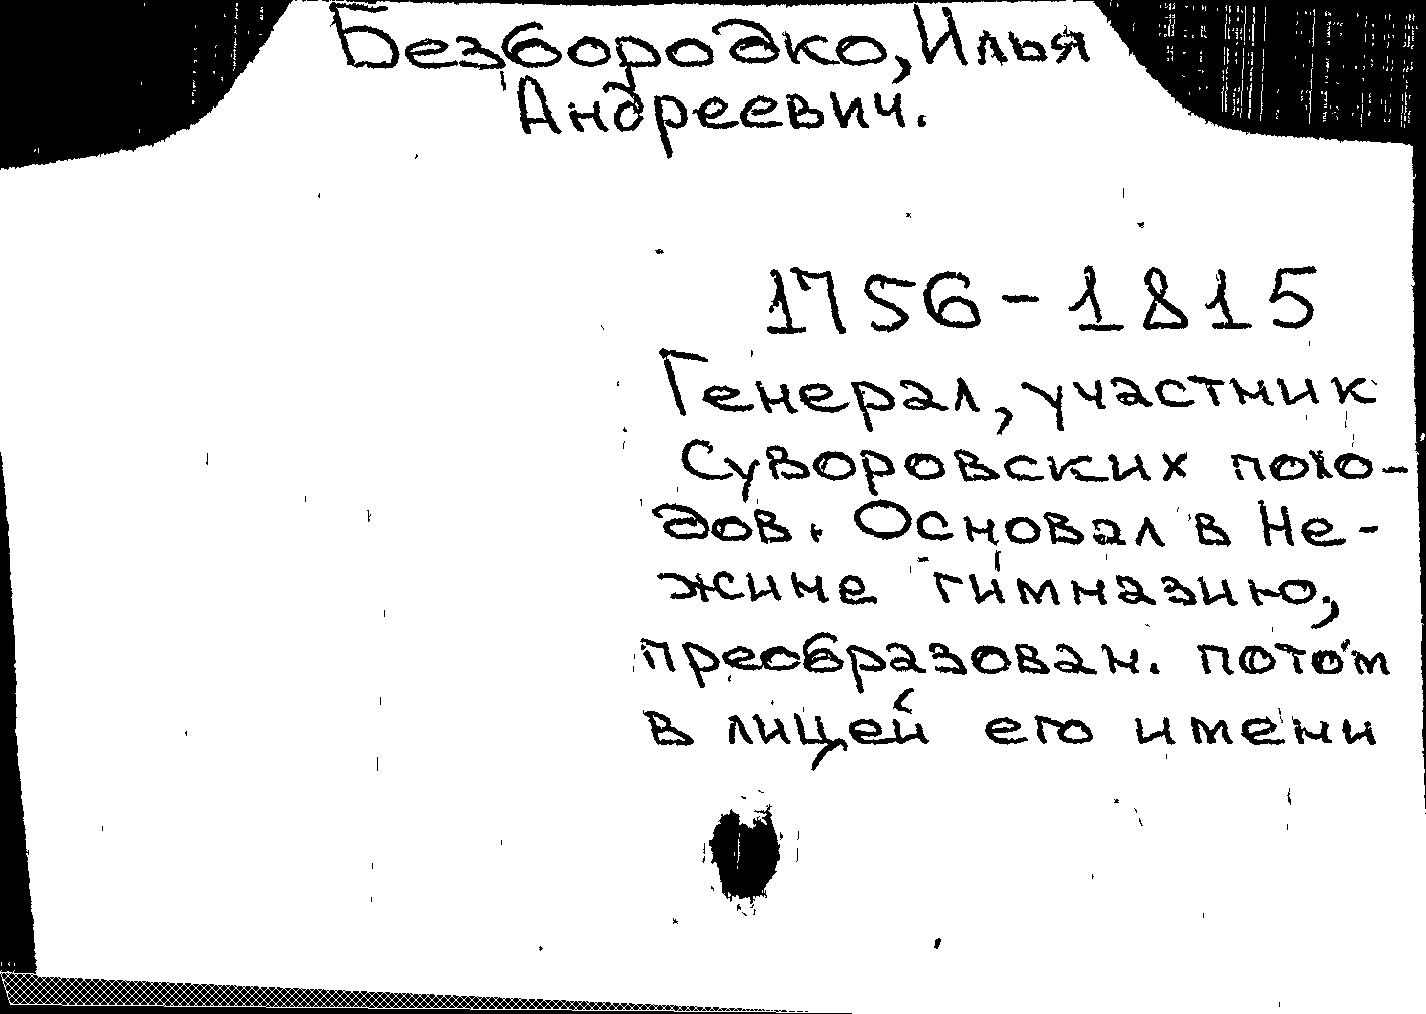 Безбородко, Илья
Андреевич.
1756-1815
Генерал, участник
Суворовских похо-
дов. Основал в Не-
жине гимназию,
преобразован. потом
в лицей его имени